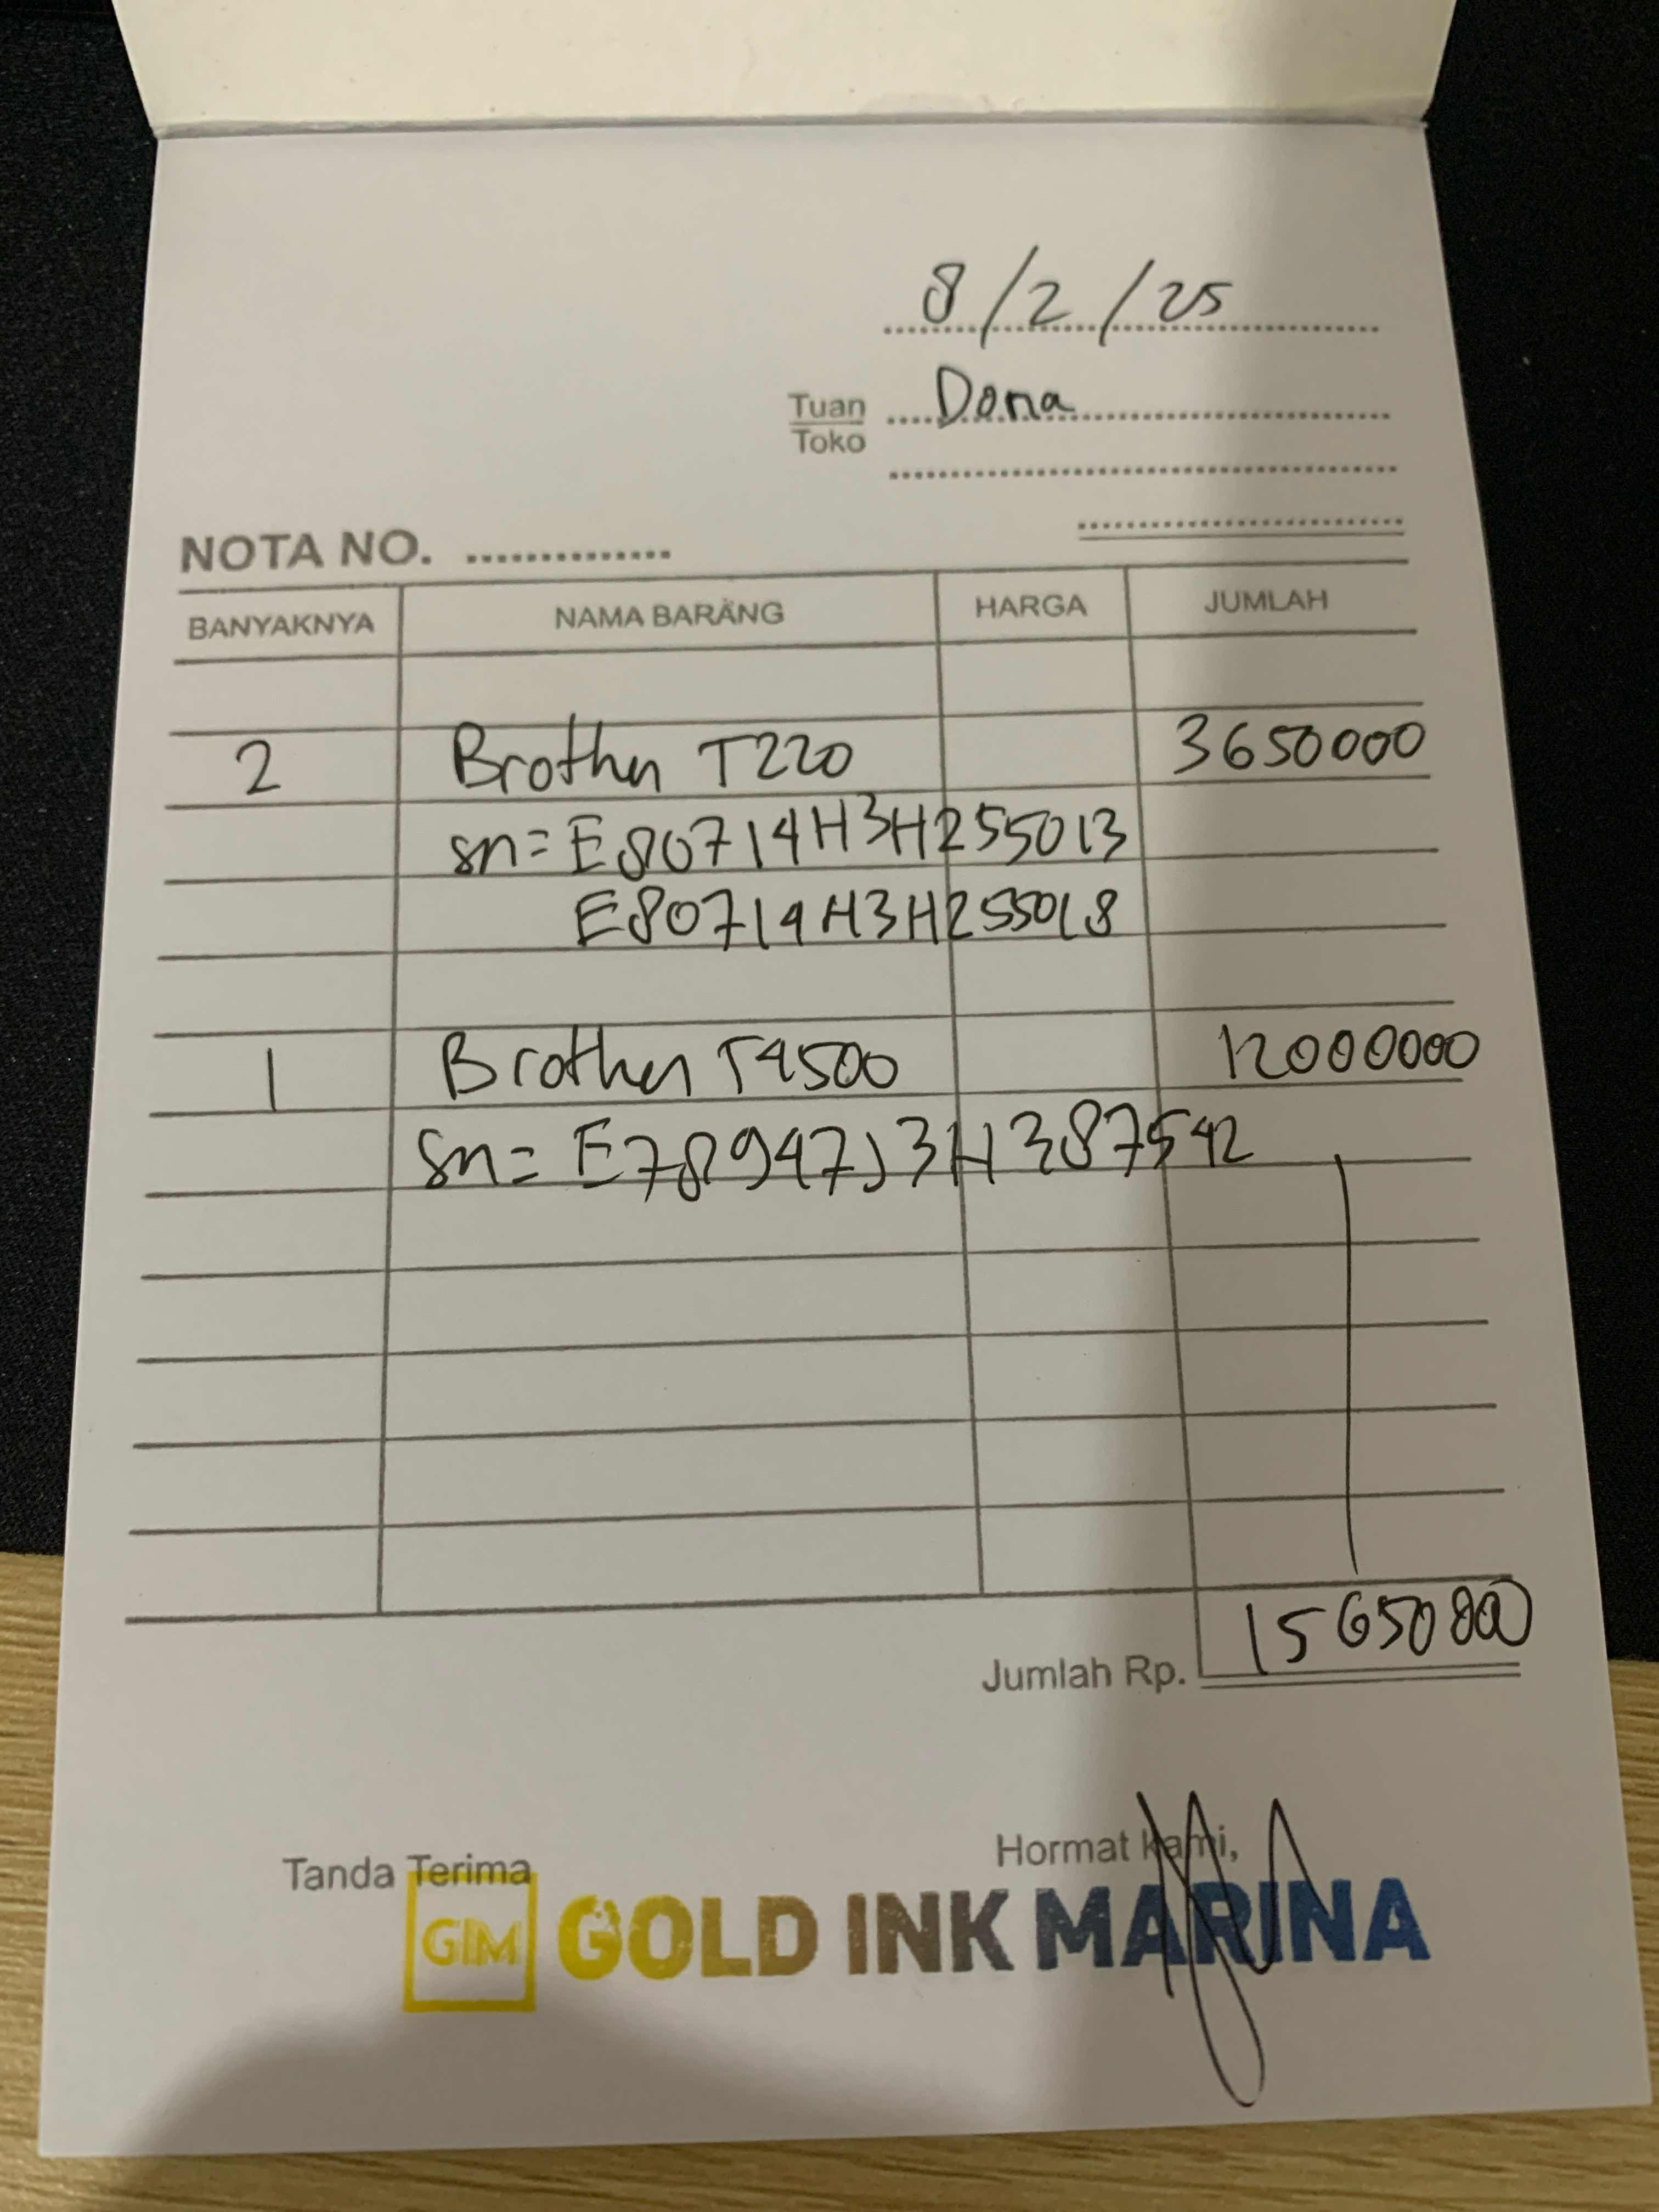 8/2/25
Tuan Dona
Toko
NOTA NO.
BANYAKNYA NAMA BARANG HARGA JUMLAH
2 Brother T220 3650000
sn= E80714H3H255013
E80714H3H255018
1 Brother T4500 12000000
sn= E78947J3H387542
Jumlah Rp. 15650000
Tanda Terima Hormat kami,
GIM GOLD INK MARINA